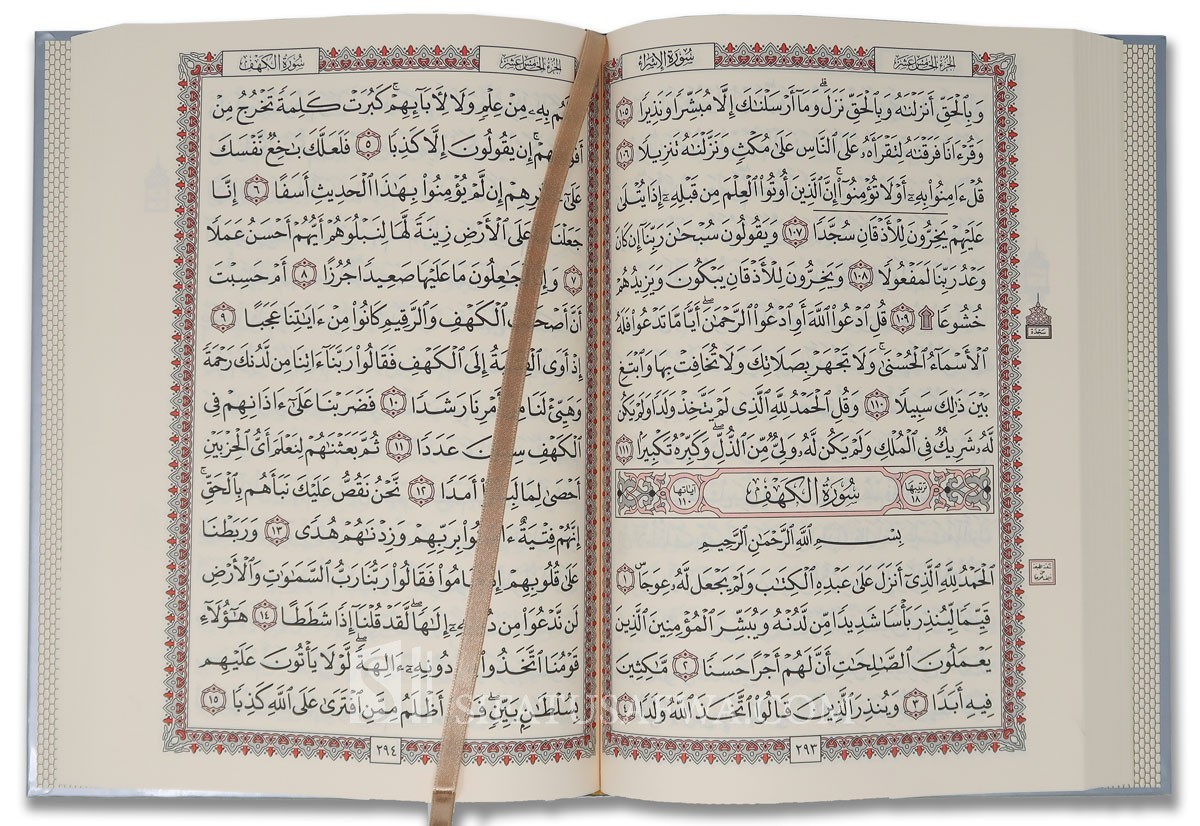 الجزء الخامس عشر
سورة الإسراء
وَبِالْحَقِّ أَنزَلْنَاهُ وَبِالْحَقِّ نَزَلَ ۗ وَمَا أَرْسَلْنَاكَ إِلَّا مُبَشِّرًا وَنَذِيرًا ١٠٥
وَقُرْءَانًا فَرَقْنَاهُ لِتَقْرَأَهُ عَلَى النَّاسِ عَلَىٰ مُكْثٍ وَنَزَّلْنَاهُ تَنزِيلًا ١٠٦
قُلْ ءَامِنُوا بِهِ أَوْ لَا تُؤْمِنُوا ۚ إِنَّ الَّذِينَ أُوتُوا الْعِلْمَ مِن قَبْلِهِ إِذَا يُتْلَىٰ
عَلَيْهِمْ يَخِرُّونَ لِلْأَذْقَانِ سُجَّدًا ١٠٧ وَيَقُولُونَ سُبْحَانَ رَبِّنَا إِن كَانَ
وَعْدُ رَبِّنَا لَمَفْعُولًا ١٠٨ وَيَخِرُّونَ لِلْأَذْقَانِ يَبْكُونَ وَيَزِيدُهُمْ
خُشُوعًا ۩ ١٠٩ قُلِ ادْعُوا اللَّهَ أَوِ ادْعُوا الرَّحْمَٰنَ ۖ أَيًّا مَّا تَدْعُوا فَلَهُ
الْأَسْمَاءُ الْحُسْنَىٰ ۚ وَلَا تَجْهَرْ بِصَلَاتِكَ وَلَا تُخَافِتْ بِهَا وَابْتَغِ
بَيْنَ ذَٰلِكَ سَبِيلًا ١١٠ وَقُلِ الْحَمْدُ لِلَّهِ الَّذِي لَمْ يَتَّخِذْ وَلَدًا وَلَمْ يَكُن
لَّهُ شَرِيكٌ فِي الْمُلْكِ وَلَمْ يَكُن لَّهُ وَلِيٌّ مِّنَ الذُّلِّ ۖ وَكَبِّرْهُ تَكْبِيرًا ١١١
ترتيبها ١٨ سورة الكهف آياتها ١١٠
بِسْمِ اللَّهِ الرَّحْمَٰنِ الرَّحِيمِ
الْحَمْدُ لِلَّهِ الَّذِي أَنزَلَ عَلَىٰ عَبْدِهِ الْكِتَابَ وَلَمْ يَجْعَل لَّهُ عِوَجًا ۜ ١
قَيِّمًا لِّيُنذِرَ بَأْسًا شَدِيدًا مِّن لَّدُنْهُ وَيُبَشِّرَ الْمُؤْمِنِينَ الَّذِينَ
يَعْمَلُونَ الصَّالِحَاتِ أَنَّ لَهُمْ أَجْرًا حَسَنًا ٢ مَّاكِثِينَ
فِيهِ أَبَدًا ٣ وَيُنذِرَ الَّذِينَ قَالُوا اتَّخَذَ اللَّهُ وَلَدًا ٤
٢٩٣
سجدة
الجزء الخامس عشر
سورة الكهف
لَهُم بِهِ مِنْ عِلْمٍ وَلَا لِآبَائِهِمْ ۚ كَبُرَتْ كَلِمَةً تَخْرُجُ مِنْ
إِن يَقُولُونَ إِلَّا كَذِبًا ٥ فَلَعَلَّكَ بَاخِعٌ نَّفْسَكَ
عَلَىٰ إِن لَّمْ يُؤْمِنُوا بِهَٰذَا الْحَدِيثِ أَسَفًا ٦ إِنَّا
جَعَلْنَا عَلَى الْأَرْضِ زِينَةً لَّهَا لِنَبْلُوَهُمْ أَيُّهُمْ أَحْسَنُ عَمَلًا
٧ لَجَاعِلُونَ مَا عَلَيْهَا صَعِيدًا جُرُزًا ٨ أَمْ حَسِبْتَ
أَنَّ أَصْحَابَ الْكَهْفِ وَالرَّقِيمِ كَانُوا مِنْ ءَايَاتِنَا عَجَبًا ٩
إِذْ أَوَى إِلَى الْكَهْفِ فَقَالُوا رَبَّنَا ءَاتِنَا مِن لَّدُنكَ رَحْمَةً
وَهَيِّئْ لَنَا مِنْ أَمْرِنَا رَشَدًا ١٠ فَضَرَبْنَا عَلَىٰ ءَاذَانِهِمْ فِي
الْكَهْفِ سِنِينَ عَدَدًا ١١ ثُمَّ بَعَثْنَاهُمْ لِنَعْلَمَ أَيُّ الْحِزْبَيْنِ
أَحْصَىٰ لِمَا لَبِثُوا أَمَدًا ١٢ نَّحْنُ نَقُصُّ عَلَيْكَ نَبَأَهُم بِالْحَقِّ ۚ
إِنَّهُمْ فِتْيَةٌ بِرَبِّهِمْ وَزِدْنَاهُمْ هُدًى ١٣ وَرَبَطْنَا
عَلَىٰ قُلُوبِهِمْ إِذْ قَامُوا فَقَالُوا رَبُّنَا رَبُّ السَّمَاوَاتِ وَالْأَرْضِ
لَن نَّدْعُوَا مِن دُونِهِ إِلَٰهًا ۖ لَّقَدْ قُلْنَا إِذًا شَطَطًا ١٤ هَٰؤُلَاءِ
قَوْمُنَا اتَّخَذُوا دُونِهِ ءَالِهَةً ۖ لَّوْلَا يَأْتُونَ عَلَيْهِم
بِسُلْطَانٍ بَيِّنٍ ۖ أَظْلَمُ مِمَّنِ افْتَرَىٰ عَلَى اللَّهِ كَذِبًا ١٥
٢٩٤